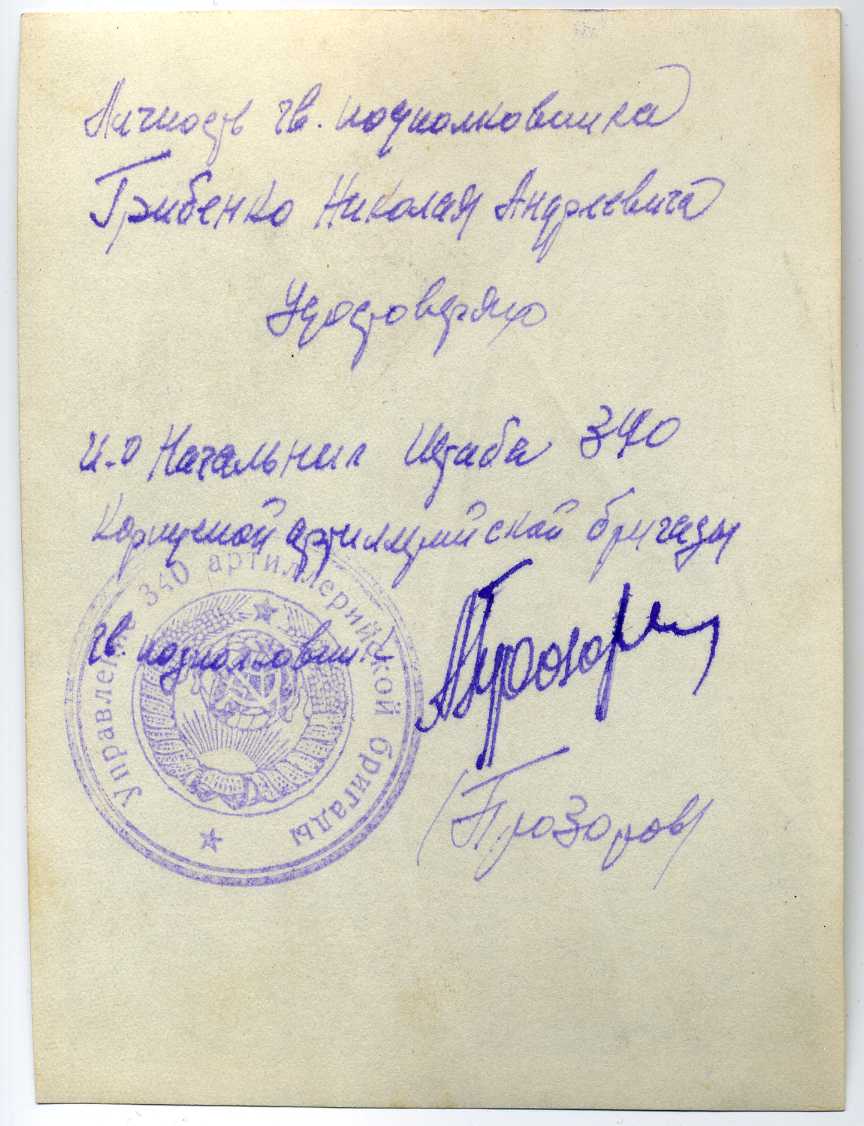 Личность гв. подполковника
Грибенко Николая Андреевича
Удостоверяю
И.о Начальник Штаба 340
Корпусной артиллерийской бригады
Гв. подполковник
(Прозоров)
Управление 340 артиллерийской бригады